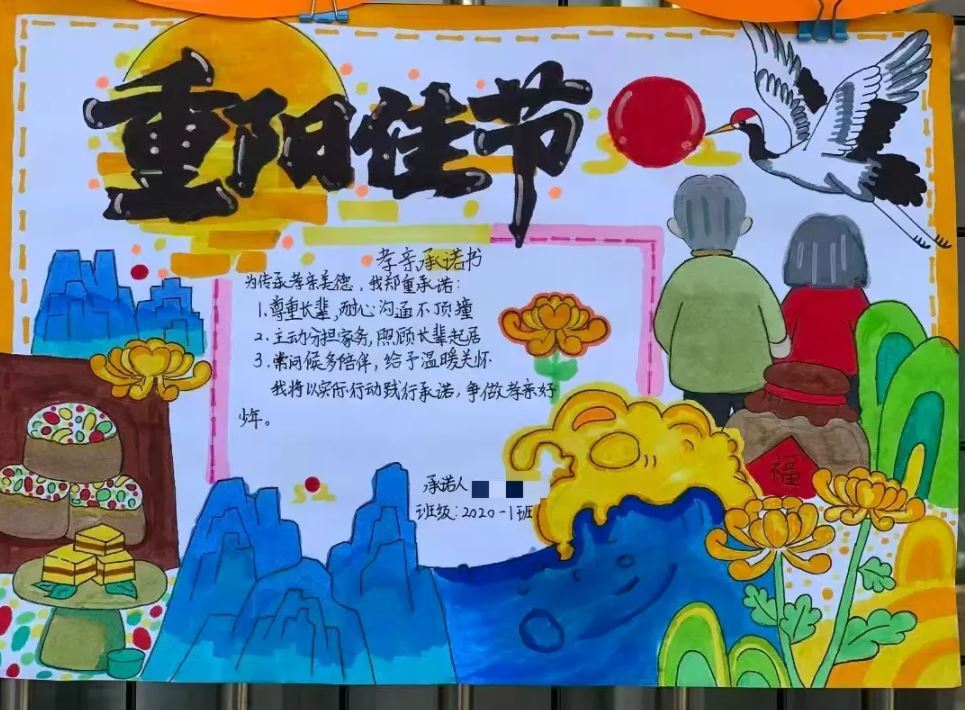 重阳佳节
孝亲承诺书
为传承孝亲美德，我郑重承诺：
1.尊重长辈，耐心沟通不顶撞
2.主动分担家务，照顾长辈起居
3.常问候多陪伴，给予温暖关怀
我将以实际行动践行承诺，争做孝亲好
少年。
福
承诺人
班级：2020-1班